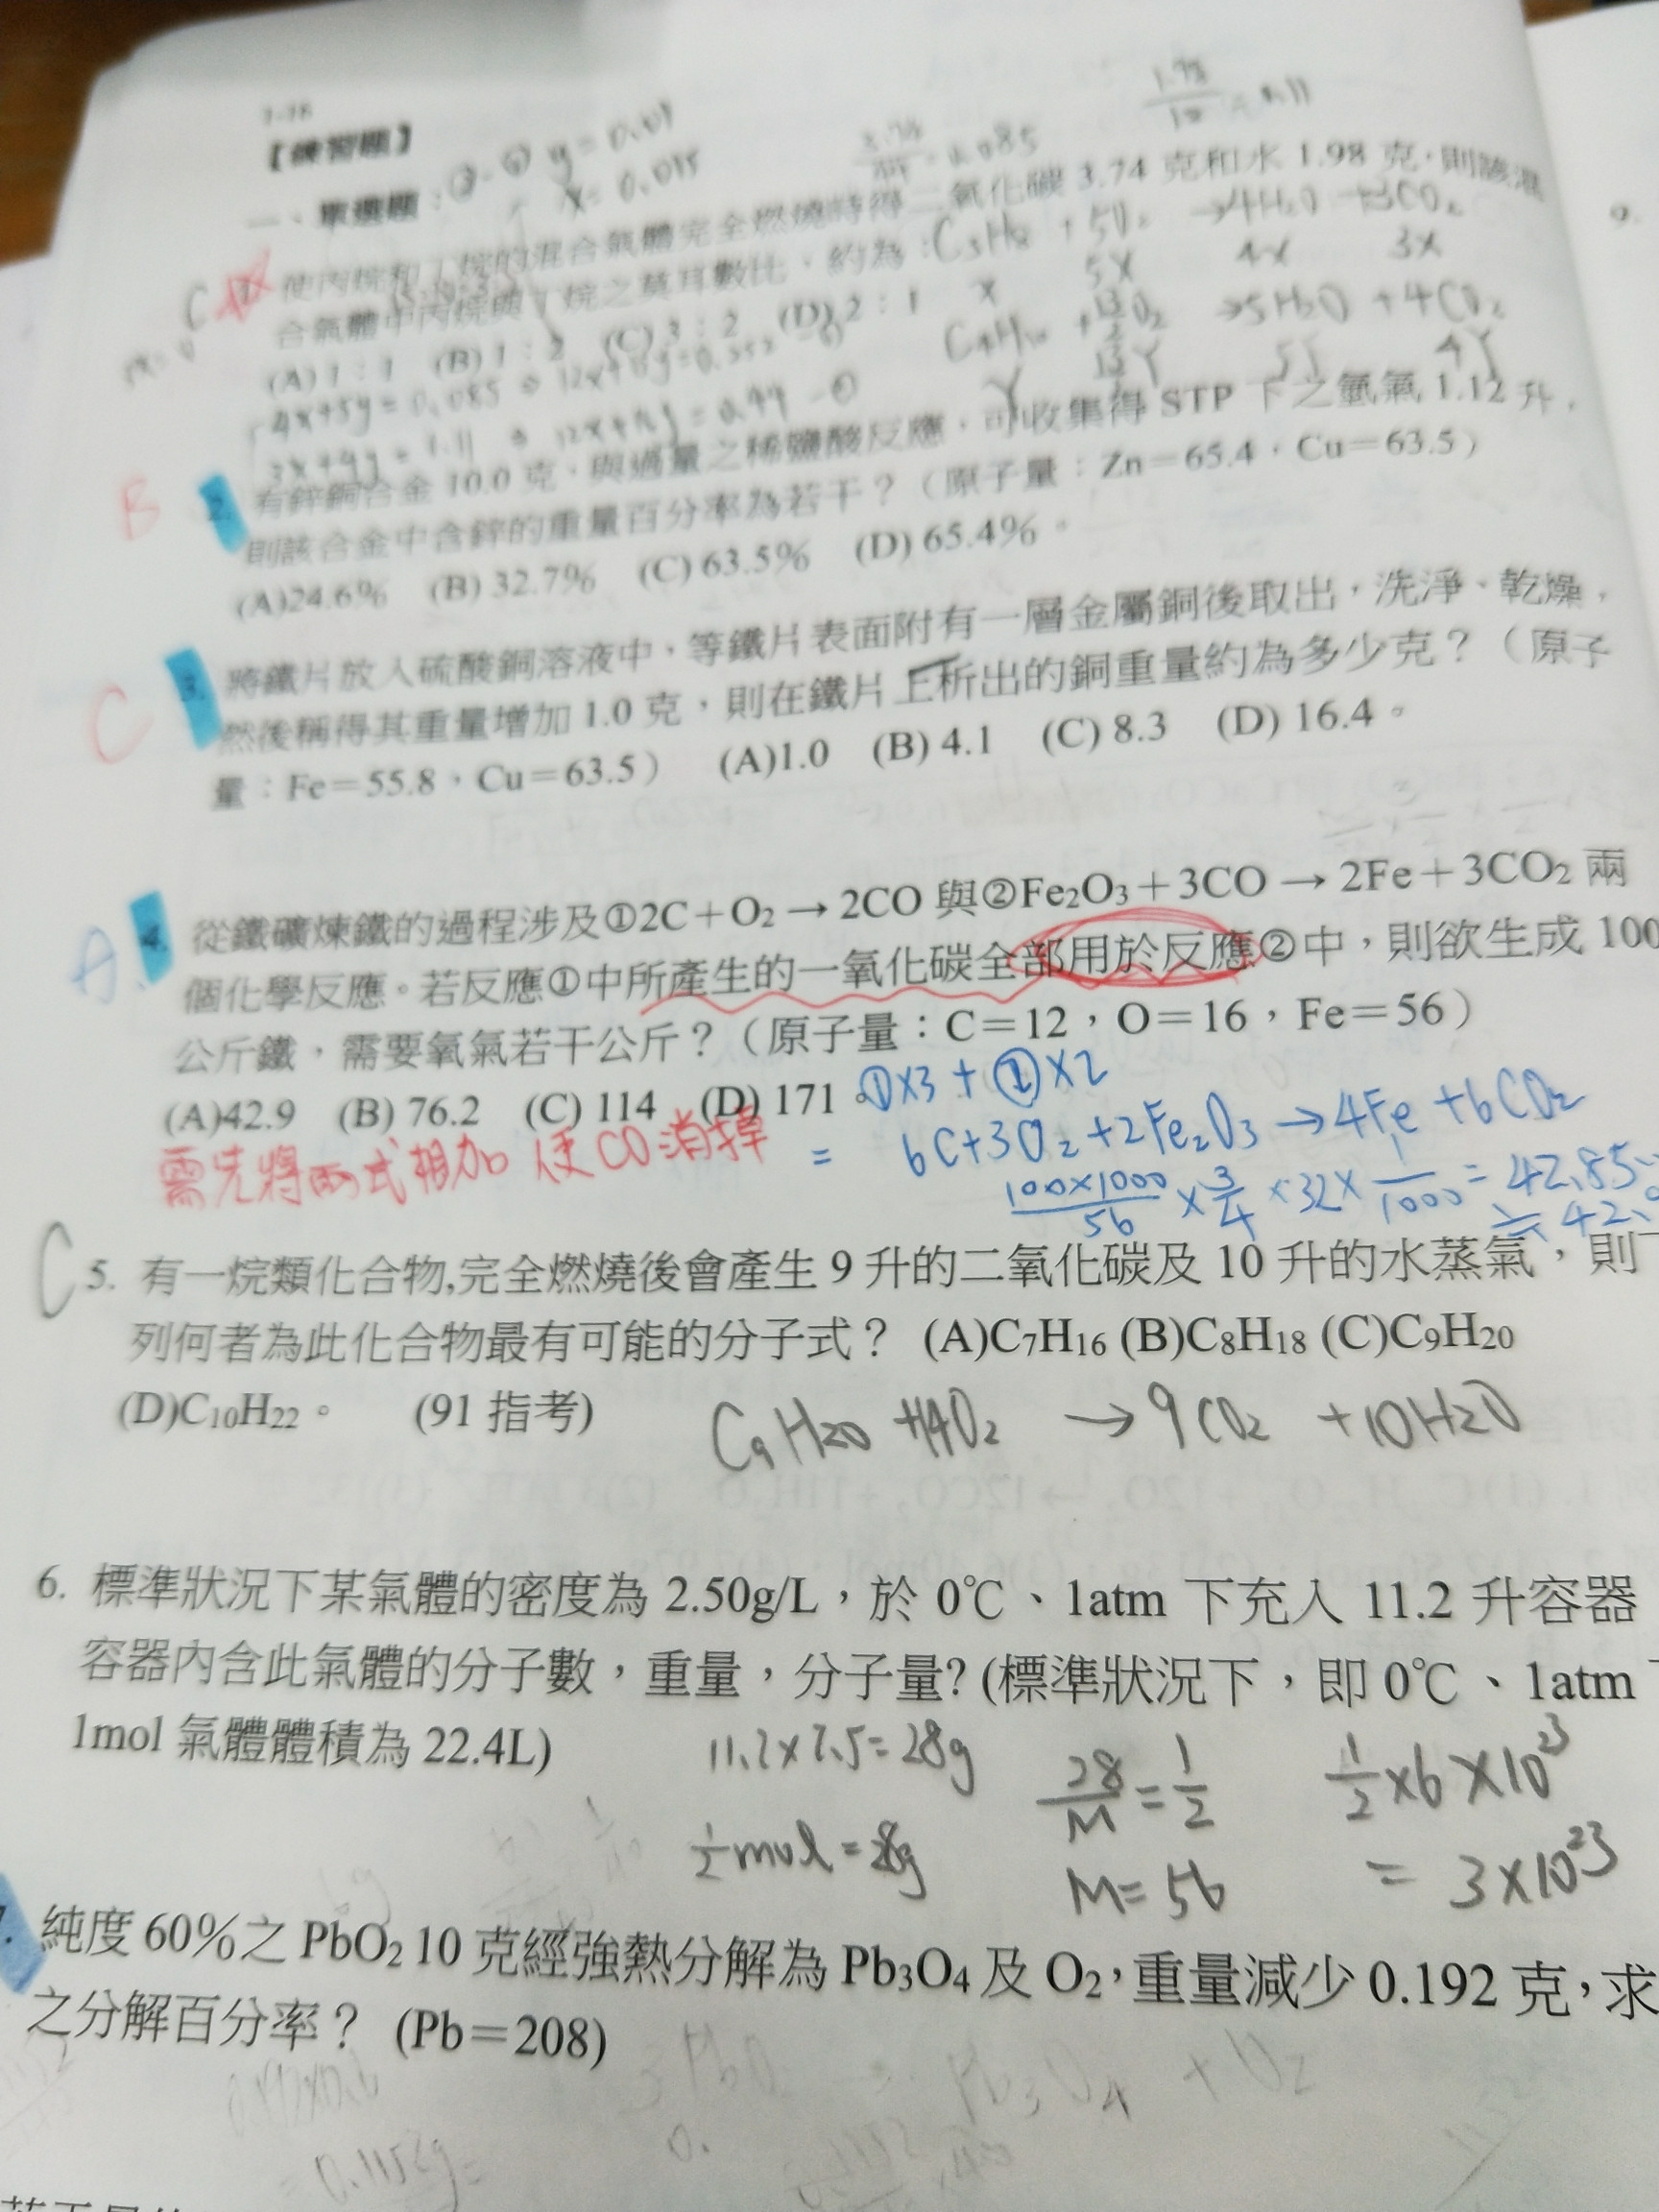 【練習題】
一、單選題:
y = 0.01
x = 0.015
使丙烷和丁烷的混合氣體完全燃燒時得二氧化碳 3.74 克和水 1.98 克,則該混
合氣體中丙烷與丁烷之莫耳數比,約為:
C
(A) 1:1 (B) 1:2 (C) 3:2 (D) 2:1
+ 5O₂ → 4H₂O + 3CO₂
x 5x 4x 3x
→ 5H₂O + 4CO₂
4x+5y=0.085
B
2. 有鋅銅合金 10.0 克,與過量之稀鹽酸反應,可收集得 STP 下之氫氣 1.12 升,
則該合金中含鋅的重量百分率為若干?(原子量:Zn=65.4,Cu=63.5)
(A)24.6% (B) 32.7% (C) 63.5% (D) 65.4%。
C
3. 將鐵片放入硫酸銅溶液中,等鐵片表面附有一層金屬銅後取出,洗淨、乾燥,
然後稱得其重量增加 1.0 克,則在鐵片上析出的銅重量約為多少克?(原子
量:Fe=55.8,Cu=63.5) (A)1.0 (B) 4.1 (C) 8.3 (D) 16.4。
A
4. 從鐵礦煉鐵的過程涉及①2C+O₂→2CO 與②Fe₂O₃+3CO→2Fe+3CO₂ 兩
個化學反應。若反應①中所產生的一氧化碳全部用於反應②中,則欲生成 100
公斤鐵,需要氧氣若干公斤?(原子量:C=12,O=16,Fe=56)
(A)42.9 (B) 76.2 (C) 114 (D) 171。
①×3 + ②×2
需先將兩式相加 使CO消掉
= 6C+3O₂+2Fe₂O₃→4Fe+6CO₂
100×1000/56 × 3/4 × 32 × 1/1000 = 42.85
C
5. 有一烷類化合物,完全燃燒後會產生 9 升的二氧化碳及 10 升的水蒸氣,則下
列何者為此化合物最有可能的分子式? (A)C₇H₁₆ (B)C₈H₁₈ (C)C₉H₂₀
(D)C₁₀H₂₂。 (91 指考)
C₉H₂₀ + 14O₂ → 9CO₂ + 10H₂O
6. 標準狀況下某氣體的密度為 2.50g/L,於 0℃、1atm 下充入 11.2 升容器
容器內含此氣體的分子數,重量,分子量? (標準狀況下,即 0℃、1atm
1mol 氣體體積為 22.4L)
11.2×2.5=28g
28/M = 1/2
1/2 ×6×10²³
1/2 mol = 28g
M=56
= 3×10²³
純度 60%之 PbO₂ 10 克經強熱分解為 Pb₃O₄ 及 O₂,重量減少 0.192 克,求
之分解百分率? (Pb=208)
3PbO₂ Pb₃O₄ + O₂
= 0.1152g